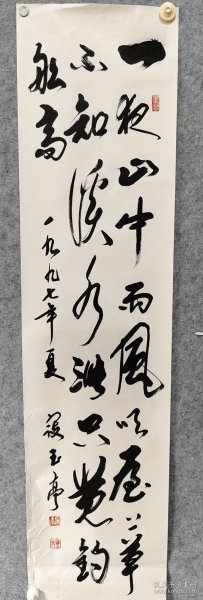 一夜山中雨風吹屋上茅
不知溪水漲只覺釣
船高
一九九七年夏
玉亭